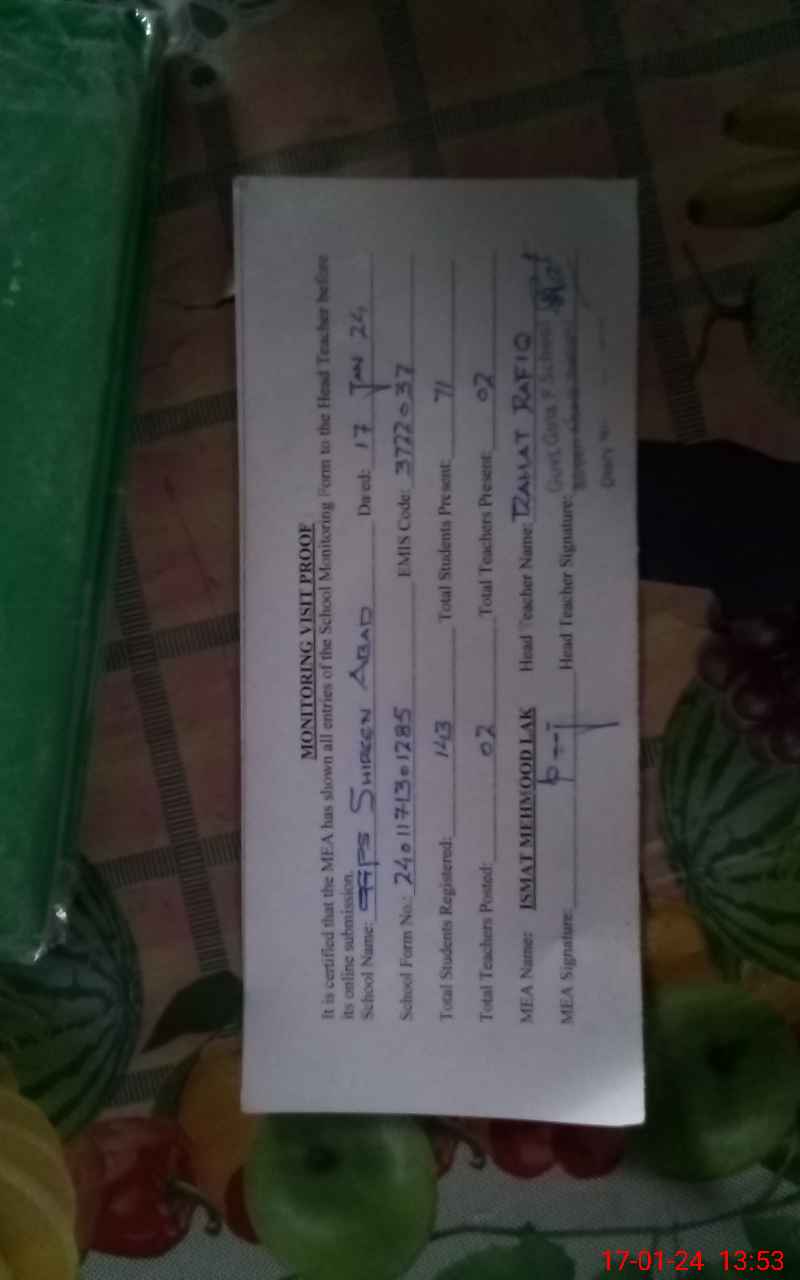 MONITORING VISIT PROOF
It is certified that the MEA has shown all entries of the School Monitoring Form to the Head Teacher before
its online submission.
School Name: GGPS SHIREEN ABAD Dated: 17 JAN 24
School Form No.: 2401171301285 EMIS Code: 37220037
Total Students Registered: 143 Total Students Present: 71
Total Teachers Posted: 02 Total Teachers Present: 02
MEA Name: ISMAT MEHMOOD LAK Head Teacher Name: RAHAT RAFIQ
MEA Signature: Head Teacher Signature:
Govt. Girls P. School
17-01-24 13:53